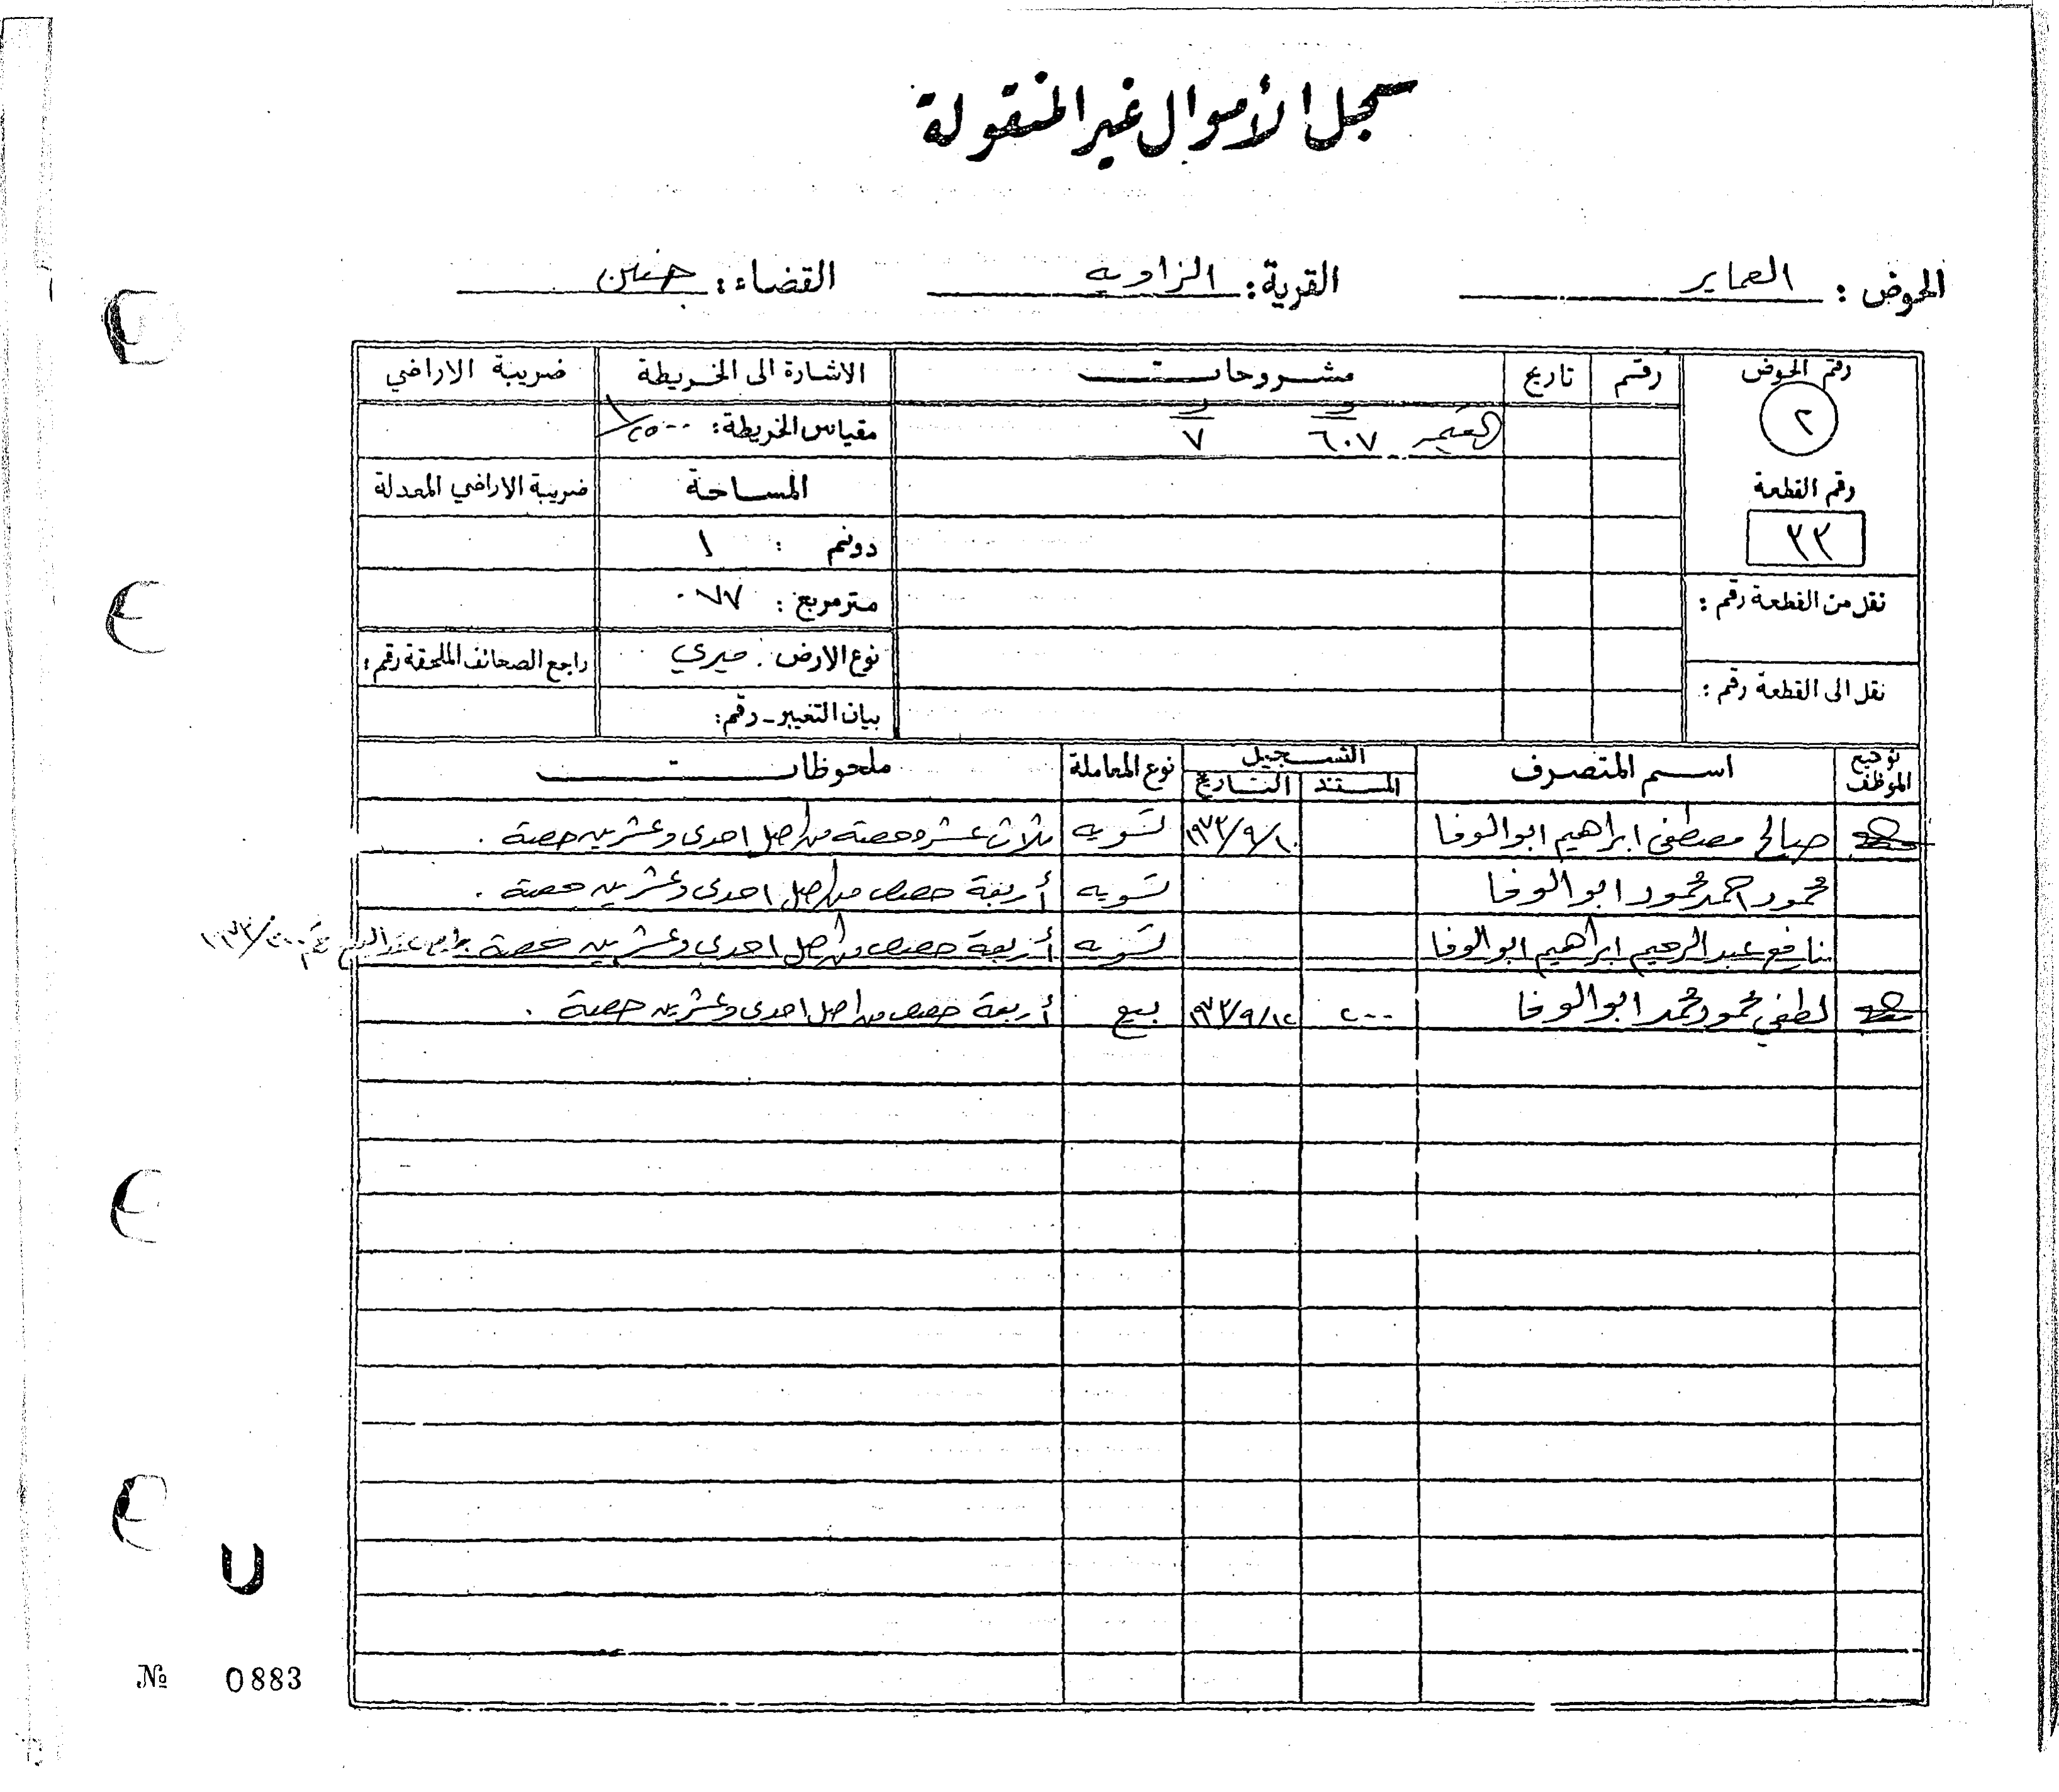 سجل الأموال غير المنقولة
الحوض : العماير القرية : الزاويه القضاء : جنين
رقم الحوض رقم تاريخ مشروحات الاشارة الى الخريطة ضريبة الاراضي
٢ و ر مقياس الخريطة : ١/٢٥٠٠
٦٠٧ ٧
رقم القطعة المساحة ضريبة الاراضي المعدلة
٣٣ دونم : ١
نقل من القطعة رقم : متر مربع : ٠٧٧
نوع الارض : ميري راجع الصحائف الملحقة رقم :
نقل الى القطعة رقم : بيان التغيير - رقم :
توقيع الموظف اسم المتصرف التسجيل نوع المعاملة ملحوظات
المستند التاريخ
صالح مصطفى ابراهيم ابو الوفا ١٩٧٣/٩/١٠ تسويه ثلاث عشره حصته من اصل احدى وعشرين حصة .
محمود احمد محمود ابو الوفا تسويه أربعة حصص من اصل احدى وعشرين حصة .
نافع عبد الرحيم ابراهيم ابو الوفا تسويه أربعة حصص من اصل احدى وعشرين حصة
لطفي محمود محمد ابو الوفا ٢٠٠٠ بيع أربعة حصص من اصل احدى وعشرين حصة .
№ 0883